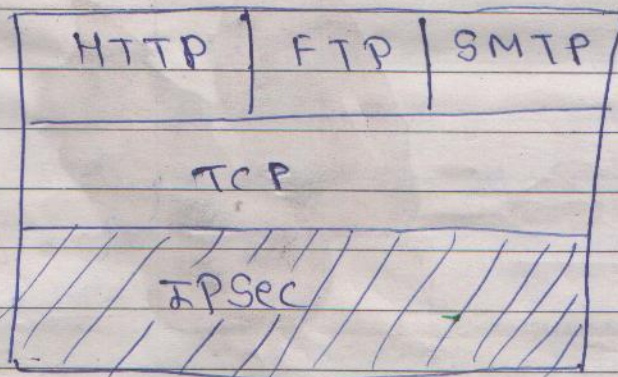 HTTP FTP SMTP
TCP
IPSec